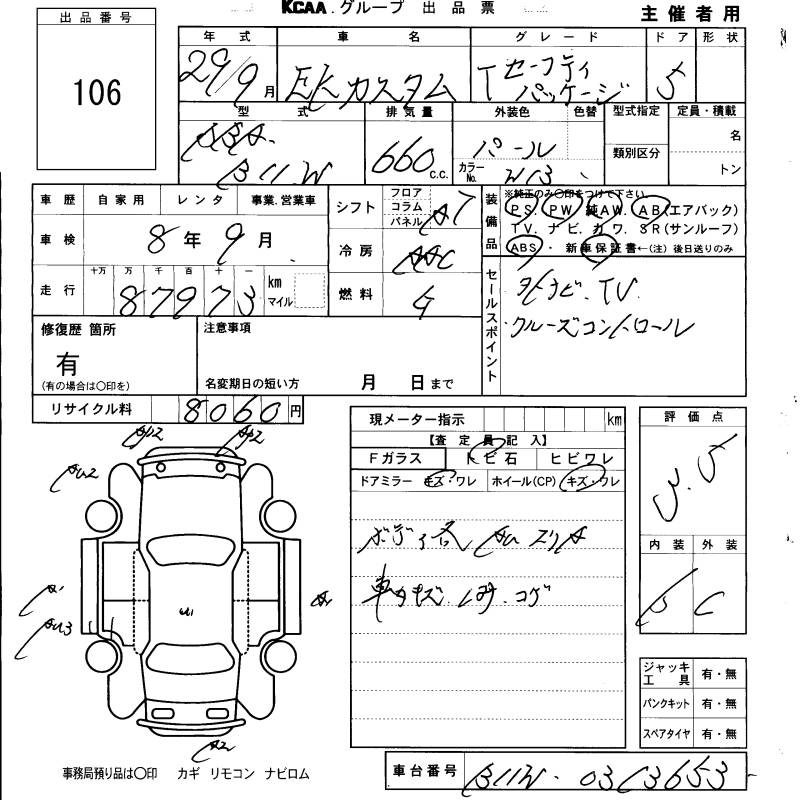 KCAA.グループ 出品票
主催者用
出品番号
106
年式 車名 グレード ドア 形状
29/9月 EKカスタム Tセーフティパッケージ 5
型式 排気量 外装色 色替 型式指定 定員・積載
DBA B11W 660 c.c. パール カラーNo. W13 類別区分 名 トン
車歴 自家用 レンタ 事業.営業車
車検 8年9月
走行 十万 万 千 百 十 一 km マイル
87973
シフト フロア コラム パネル AT
冷房 AAC
燃料 G
装備品 ※純正のみ○印をつけて下さい
PS. PW 純AW. AB(エアバック)
TV. ナビ. カワ. SR(サンルーフ)
ABS・新車保証書←(注)後日送りのみ
セールスポイント
外ナビ.TV.
クルーズコントロール
修復歴 箇所 注意事項
有
(有の場合は○印を) 名変期日の短い方 月 日まで
リサイクル料 8060円
現メーター指示 km
【査定員記入】
Fガラス トビ石 ヒビワレ
ドアミラー キズ・ワレ ホイール(CP) キズ・ワレ
ボディ各 AU スリA
車内キズ.シミ.コゲ
評価点
3.5
内装 外装
B C
A2 A2
AU2
A1
AU3
A1
A2
ジャッキ工具 有・無
パンクキット 有・無
スペアタイヤ 有・無
事務局預り品は○印 カギ リモコン ナビロム
車台番号 B11W-0303653